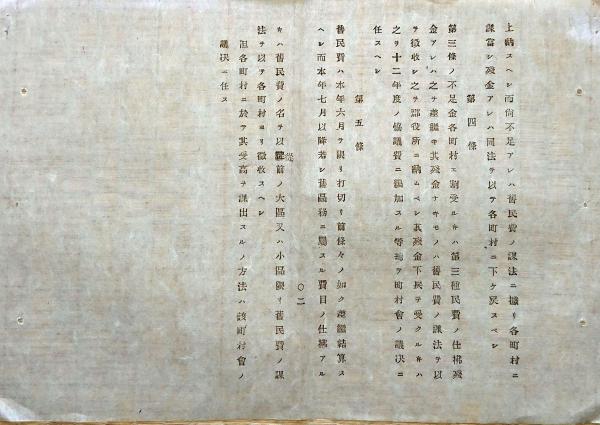 上納スヘシ而尙不足アレハ舊民費ノ課法ニ據リ各町村ニ
課當シ殘金アレハ同法ヲ以テ各町村ニ下ケ戾スベシ
第四條
第三條ノ不足金各町村ヱ割受ルキハ第三種民費ノ仕拂殘
金アレハ之ヲ 其殘金ナキモノハ舊民費ノ課法ヲ以
テ徵收シ之ヲ郡役所ニ納ムベシ其殘金下戾ヲ受クルキハ
之ヲ十二年度ノ協議費ニ 加スル等 テ町村會ノ議决ニ
任スヘシ
第五條
舊民費ハ本年六月ヲ限リ打切リ前條々ノ如ク 結算ス
ヘシ而本年七月以降若シ舊區務ニ屬スル費目ノ仕拂アル
〇二
キハ舊民費ノ名ヲ以 從前ノ大區又ハ小區限リ舊民費ノ課
法ヲ以テ各町村ヨリ徵收スヘシ
但各町村ニ於テ其受高ヲ課出スルノ方法ハ該町村會ノ
議决ニ任ス